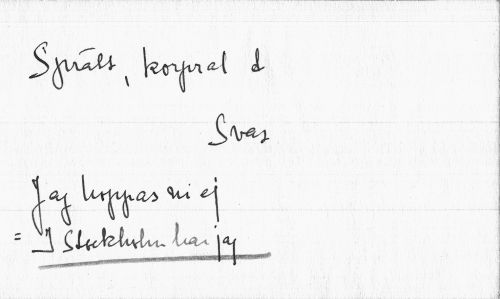 Språts, korpral d
Svas
Jag hoppas ni ej
= I Stockholm har jag